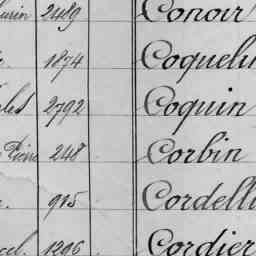 2489 Conoir
1874 Coquelin
2792 Coquin
Pierre 248 Corbin
915 Cordelli
1296 Cordier